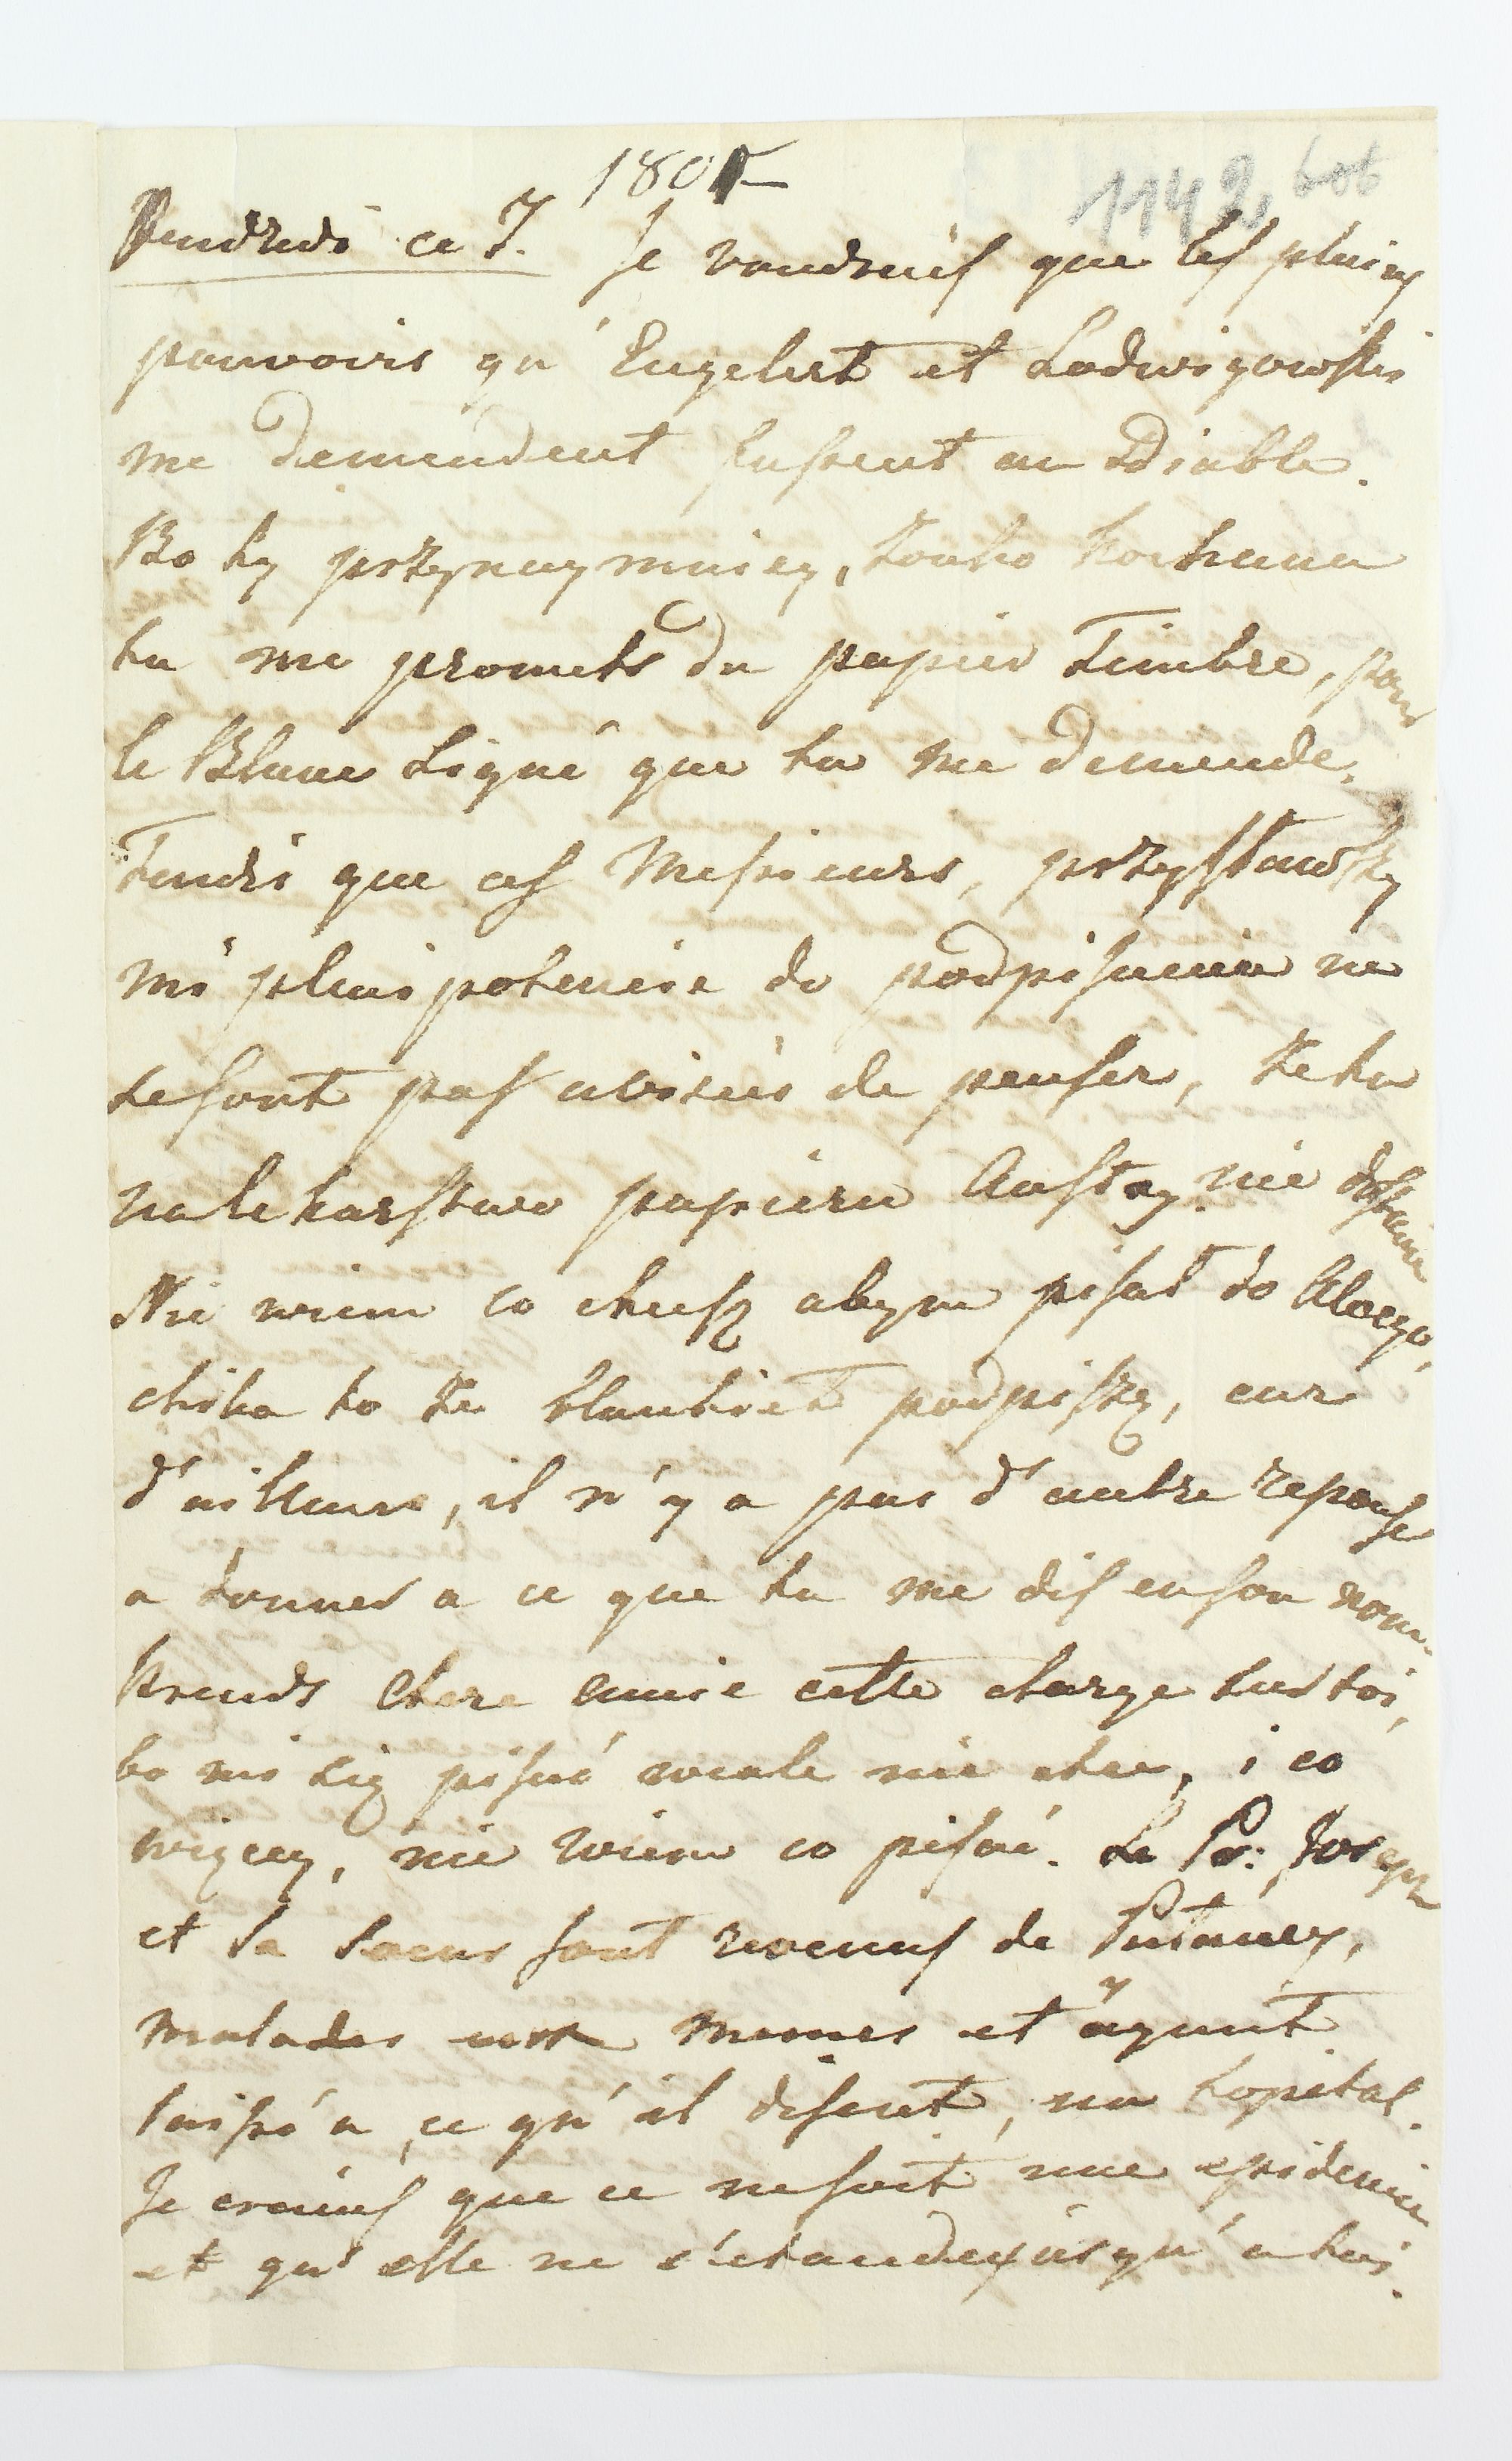 1805
1142, 606
Vendredi ce 7. Je voudrais que les pleins
pouvoirs qu'Engelert et Ludwigowski
me demendent fussent au Diable.
Bo ty przynaymniey, żonko kochana
tu me promets du papier Timbre, pour
le Blanc Signé que tu me demende,
Tendis que ces Messieurs, przysławszy
mi plenipotencie do podpisania ne
se sont pas avisées de penser, że tu
na lekarstwo papieru Austry. nie dostanie
Nie wiem co chcesz abym pisał do Aloego,
chiba to że blankiet podpiszę, car
d'ailleurs, il n'y a pas d'autre reponse
a donner a ce que tu me dis en son nom.
Prends chere amie cette charge sur toi,
bo mi się pisać wcale nie chce, i co
więcey, nie wiem co pisać. Le Pr: Joseph
et sa Soeur sont revenus de Putawy,
malades eux memes et äyant
laissé a, ce qu'il disent, un hopital.
Je crains que ce ne soit une epidemie
et qu'elle ne s'etande jusqu'a toi.